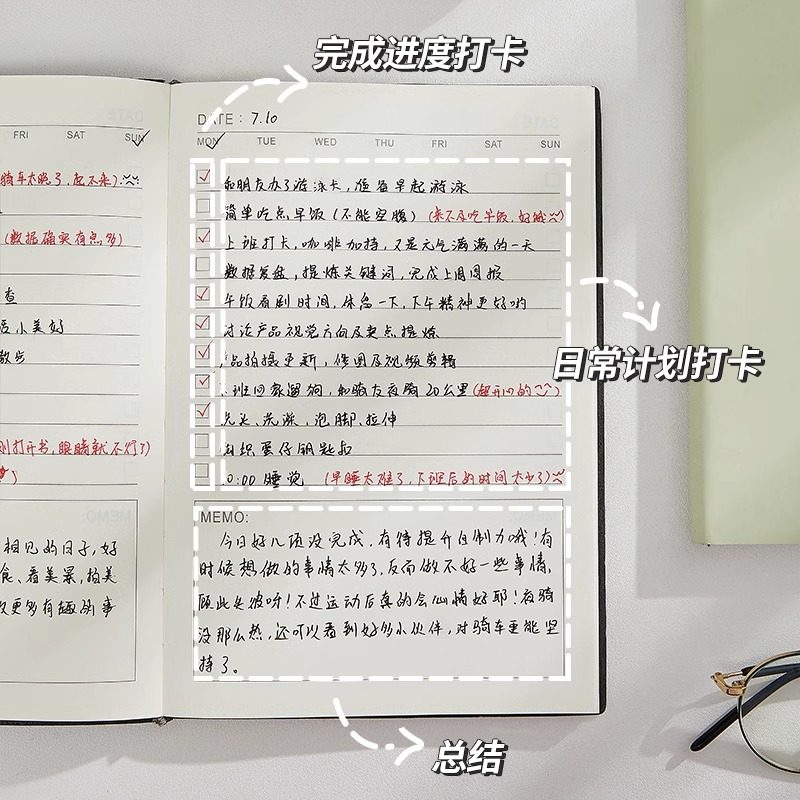 完成进度打卡
DATE: 7.10
MON TUE WED THU FRI SAT SUN
和朋友办了游泳卡，准备早起游泳
简单吃点早饭（不能空腹）（来不及吃早饭，好饿
上班打卡，咖啡加持，又是元气满满的一天
数据复盘，提炼关键词，完成上周周报
午饭看剧时间，休息一下，下午精神更好哟
讨论产品视觉方向及卖点提炼
产品拍摄更新，修图及视频剪辑
下班回家遛狗，和骑友夜骑20公里（超开心的
洗头、洗澡、泡脚、拉伸
编织蛋仔钥匙扣
0:00 睡觉 （早睡太难了，下班后的时间太少了）
日常计划打卡
MEMO:
今日好几项没完成，有待提升自制力哦！有
时候想做的事情太多了，反而做不好一些事情，
顾此失彼呀！不过运动后真的会心情好耶！夜骑
没那么热，还可以看到好多小伙伴，对骑车更能坚
持了。
总结
FRI SAT SUN
骑车太晚了，起不来）
（数据确实有点多）
查
小美好
散步
刚打开书，眼睛就不行了）
相见的日子，好
食、看美景，拍美
更多有趣的事